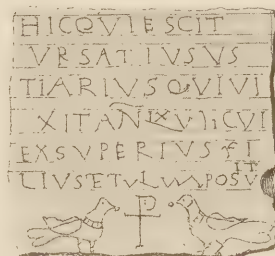 HICQVIESCIT
VRSATIVSVS
TIARIVSQVIVI
XITANLXVIICVI
EXSVPERIVSFI
LIVSETVLVMPOSVIT